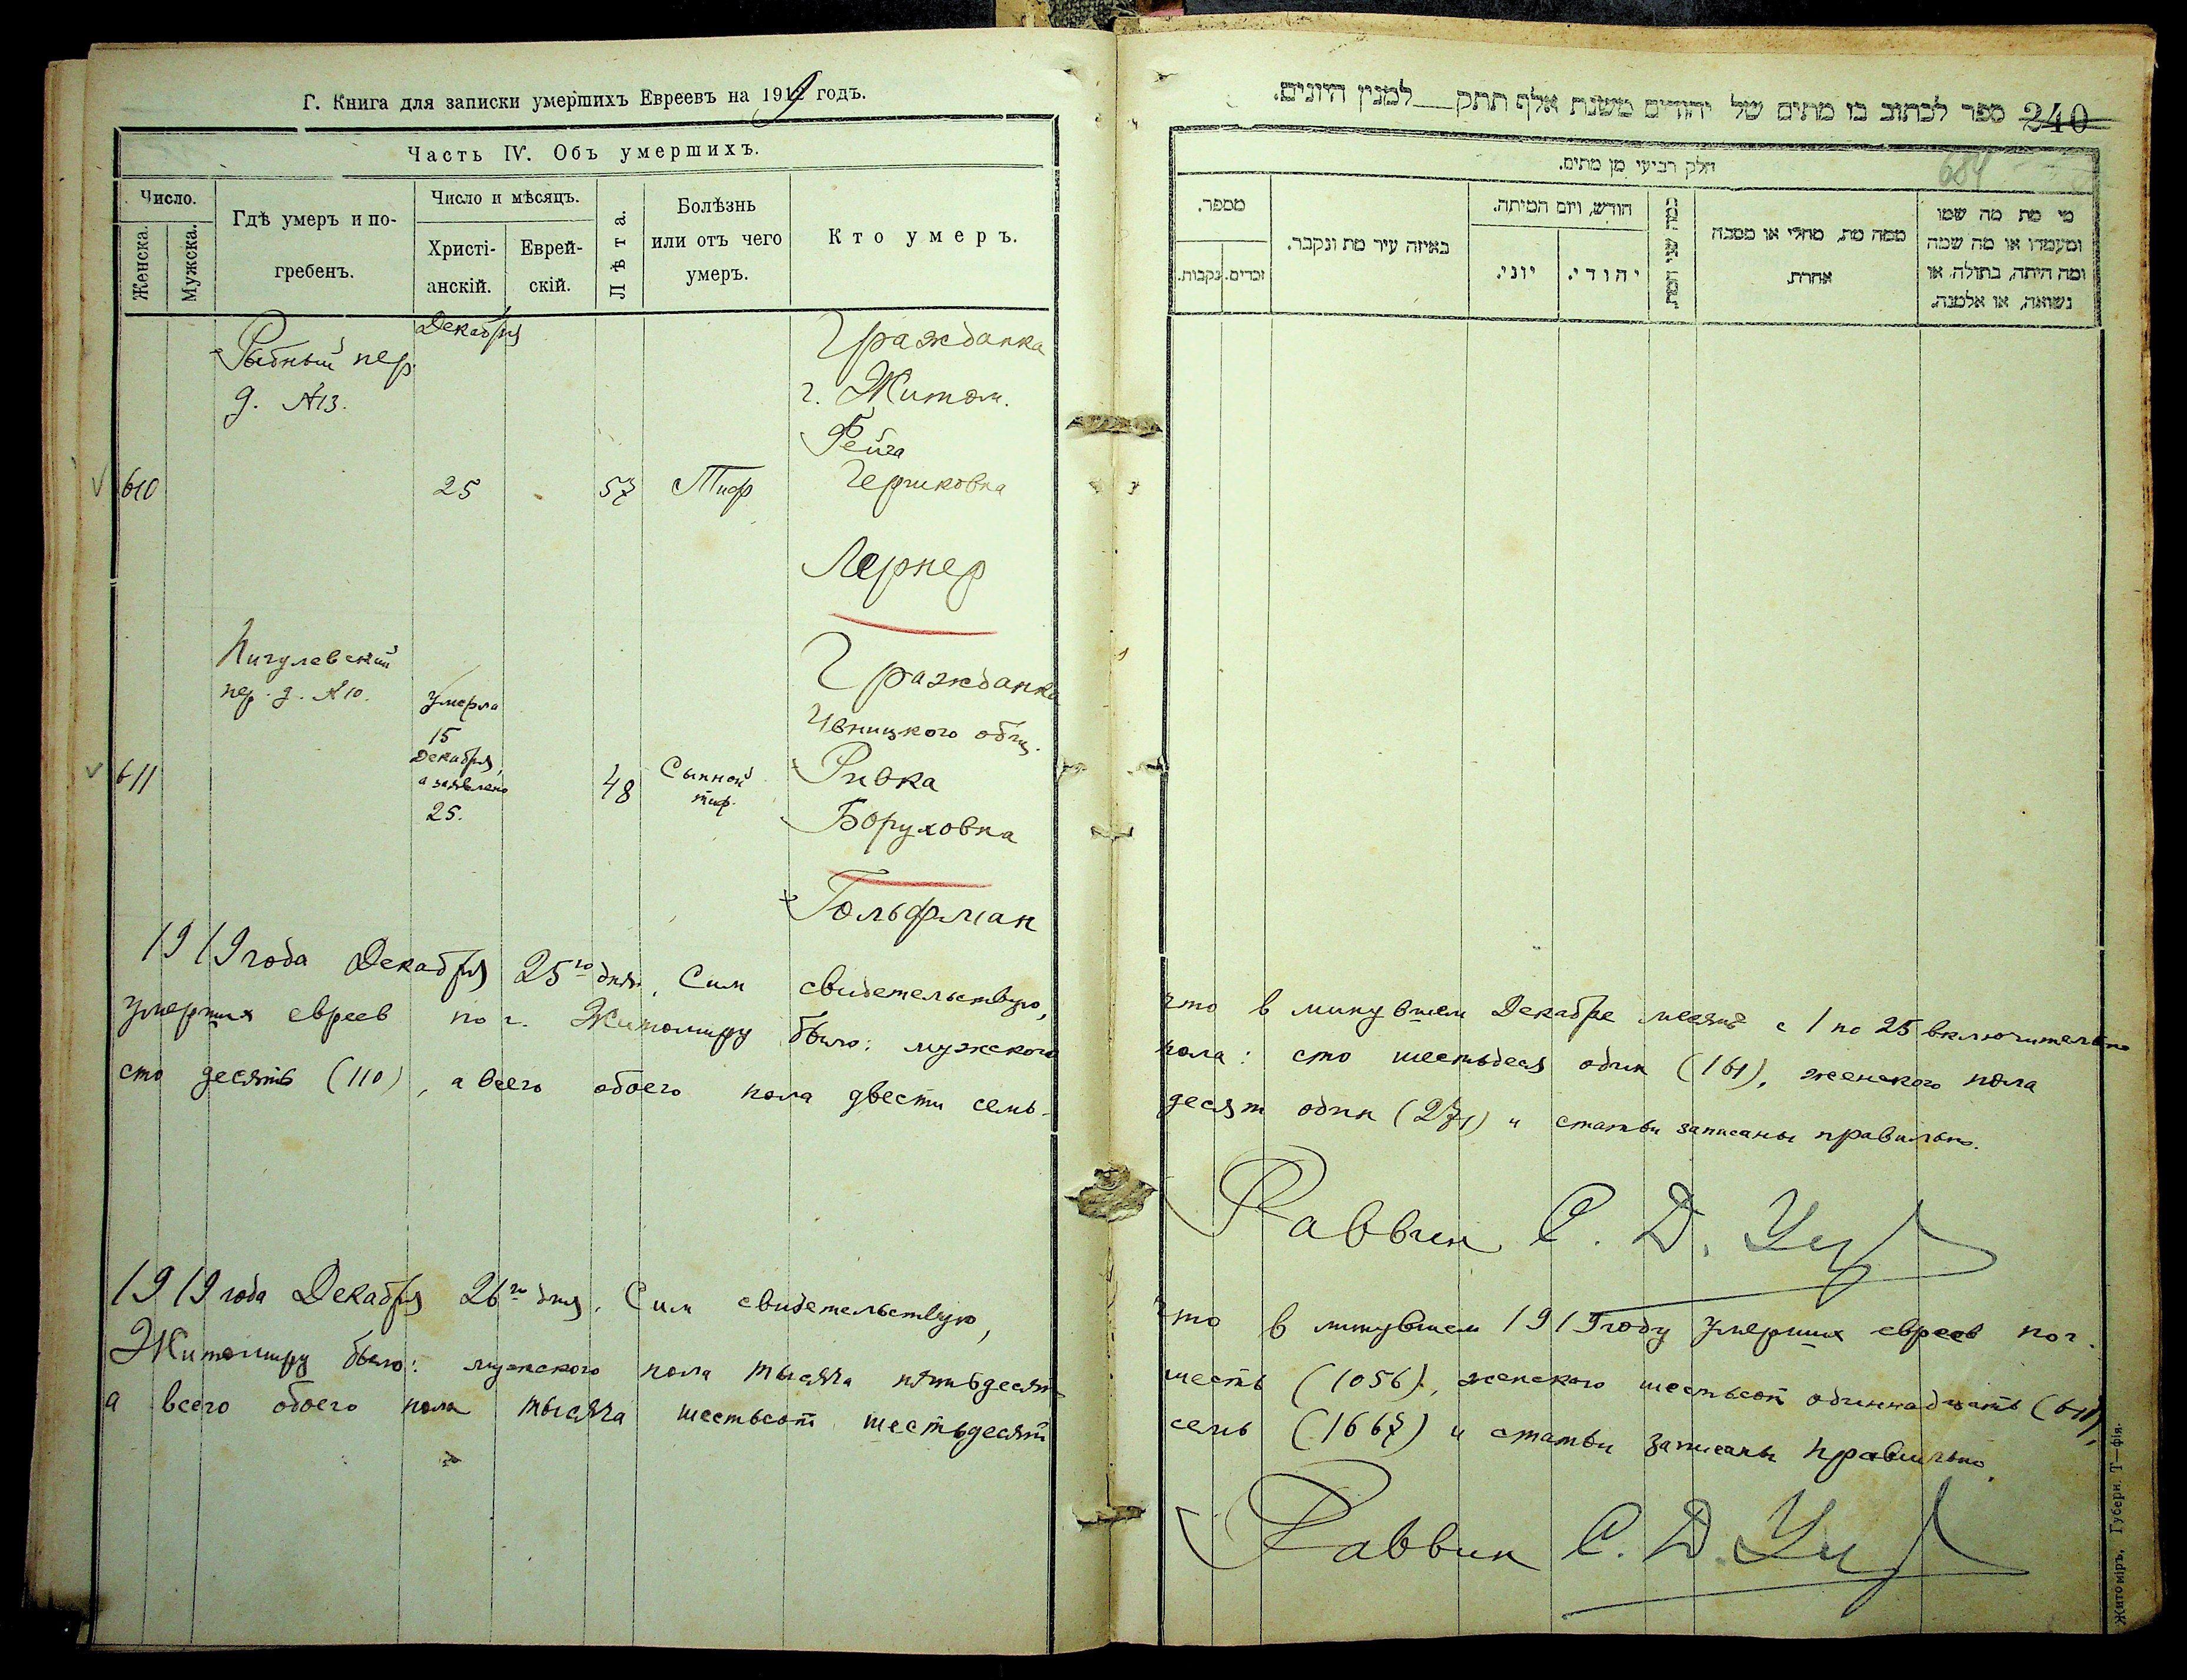 Г. Книга для записки умершихъ Евреевъ на 1919 годъ.
Часть IV. Объ умершихъ.
Число.
Женска.
Мужска.
Гдѣ умеръ и по-
гребенъ.
Число и мѣсяцъ.
Христі-
анскій.
Еврей-
скій.
Лѣта.
Болѣзнь
или отъ чего
умеръ.
Кто умеръ.
Рыбный пер.
д. №13.
Декабря
610
25
57
Тиф
Гражданка
г. Житом.
Фейга
Гершковна
Лернер
Пигулевский
пер. д. №10.
611
Умерла
15
Декабря,
а заявлено
25.
48
Сыпной
тиф.
Гражданка
Ивницкого общ.
Ривка
Боруховна
Гольфман
1919 года Декабря 25го дня. Сим свидетельствую,
умерших евреев по г. Житомиру было: мужского
сто десять (110), а всего обоего пола двести семь-
1919 года Декабря 26го дня. Сим свидетельствую,
Житомиру было: мужского пола тысяча пятьдесят
а всего обоего пола тысяча шестьсот шестьдесят
240
ספר לכתוב בו מתים של יהודים משנת אלף תתק___למנין היונים.
684
חלק רביעי מן מתים.
מספר.
נקבות.
זכרים.
באיזה עיר מת ונקבר.
חודש, ויום המיתה.
יוני.
יהודי.
ממה מת, מחלי או מסבה
אחרת.
מי מת מה שמו
ומעמדו או מה שמה
ומה היתה, בתולה, או
נשואה, או אלמנה.
что в минувшем Декабре месяце с 1 по 25 включительно
пола: сто шестьдеся один (161), женского пола
десят один (271) и статьи записаны правильно.
Раввин С. Д.
что в минувшем 1919 году умерших евреев по г.
шесть (1056), женского шестьсот одиннадцать (611),
семь (1667) и статьи записаны правильно.
Раввин С. Д.
Житоміръ, Губерн. Т—фія.